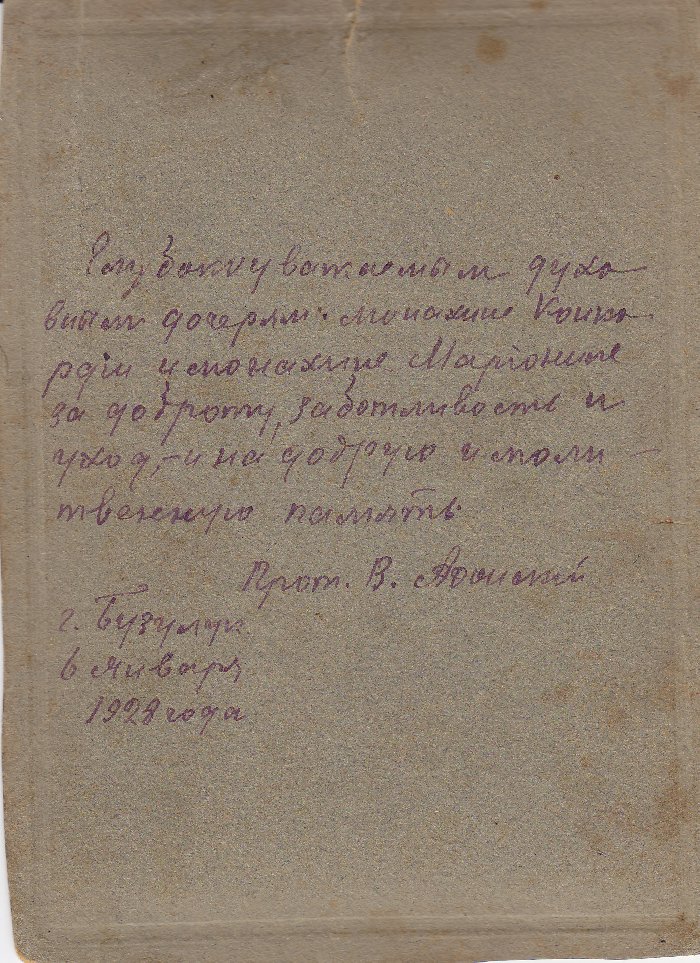 Глубокоуважаемым духо
вным дочерям: монахине Конко
рдiи и монахине Марiонине
за доброту, заботливость и
уход, – и на добрую и моли –
твенную память.
Прот. В.
г. Бузулук
6 Января
1928 года